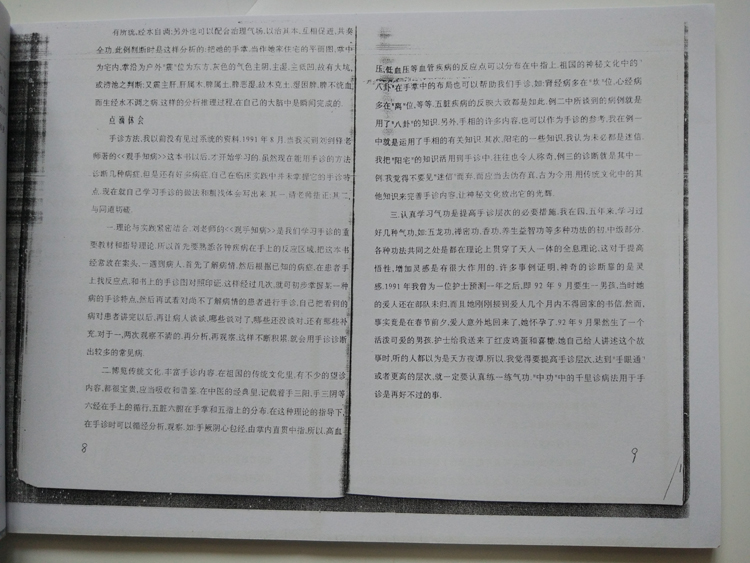 有所说,经水自调;另外也可以配合治理气场,以治其本,互相促进,共奏
全功.此例判断时是这样分析的:把她的手掌,当作她家住宅的平面图,掌中
为宅内,掌沿为户外"震"位为东方,灰色的气色主阴,主湿,主低凹,故有大坑,
或渍池之判断;又震主肝,肝属木,脾属土,脾恶湿,故木克土,湿困脾,脾不统血,
而生经水不调之病.这样的分析推理过程,在自己的大脑中是瞬间完成的.
点滴体会
手诊方法,我以前没有见过系统的资料.1991年8月当我买到刘剑锋老
师著的<<观手知病>>这本书以后,才开始学习的.虽然现在能用手诊的方法
诊断几种病症,但是还有好多病症,自己在临床实践中并未掌握它的手诊特
点,现在就自己学习手诊的做法和粗浅体会写出来.其一,请老师指正,其二,
与同道切磋.
一.理论与实践紧密结合.刘老师的<<观手知病>>是我们学习手诊的重
要教材和指导理论,所以首先要熟悉各种疾病在手上的反应区域,把这本书
经常放在案头,一遇到病人,首先了解病情,然后根据已知的病症,在患者手
上找反应点,和书上的手诊图对照印证.这样经过几次,就可初步掌握某一种
病的手诊特点,然后再试着对尚不了解病情的患者进行手诊,自己把看到的
病对患者讲完以后,再让病人谈谈,哪些谈对了,哪些还没谈对,还有那些补
充.对于一,两次观察不紧的,再分析,再观察,这样不断积累,就会用手诊诊断
出较多的常见病.
二.博览传统文化,丰富手诊内容.在祖国的传统文化里,有不少的望诊
内容,都很宝贵,应当吸收和借鉴.在中医的经典里,记载着手三阳,手三阴等
六经在手上的循行,五脏六腑在手掌和五指上的分布,在这种理论的指导下,
在手诊时可以循经分析,观察.如:手厥阴心包经,由掌内直贯中指,所以,高血
8
压,低血压等血管疾病的反应点可以分布在中指上.祖国的神秘文化中的"
八卦"在手掌中的布局也可以帮助我们手诊,如:肾经病多在"坎"位,心经病
多在"离"位,等等,五脏疾病的反映大致都是如此.例二中所谈到的病例就是
用了"八卦"的知识.另外,手相的许多内容,也可以作为手诊的参考,我在例一
中就是运用了手相的有关知识.其次,阳宅的一些知识,我认为未必都是迷信.
我把"阳宅"的知识活用到手诊中,往往也令人称奇,例三的诊断就是其中一
例.我觉得不要见"迷信"而弃,而应当去伪存真,古为今用.用传统文化中的其
他知识来完善手诊内容,让神秘文化放出它的光辉.
三.认真学习气功是提高手诊层次的必要措施.我在四,五年来,学习过
好几种气功,如:五龙功,禅密功,香功,养生益智功等多种功法的初,中级部分.
各种功法共同之处是都在理论上贯穿了天人一体的全息理论,这对于提高
悟性,增加灵感是有很大作用的.许多事例证明,神奇的诊断靠的是灵
感.1991年我曾为一位护士预测一年之后,即92年9月要生一男孩,当时她
的爱人还在部队未归,而且她刚刚接到爱人几个月内不得回家的书信,然而,
事实竟是在春节前夕,爱人意外地回来了,她怀孕了.92年9月果然生了一个
活泼可爱的男孩,护士给我送来了红皮鸡蛋和喜糖.她自己给人讲述这个故
事时,听的人都以为是天方夜谭.所以,我觉得要提高手诊层次,达到"手眼通"
或者更高的层次,就一定要认真练一练气功."中功"中的千里诊病法用于手
诊是再好不过的事.
9